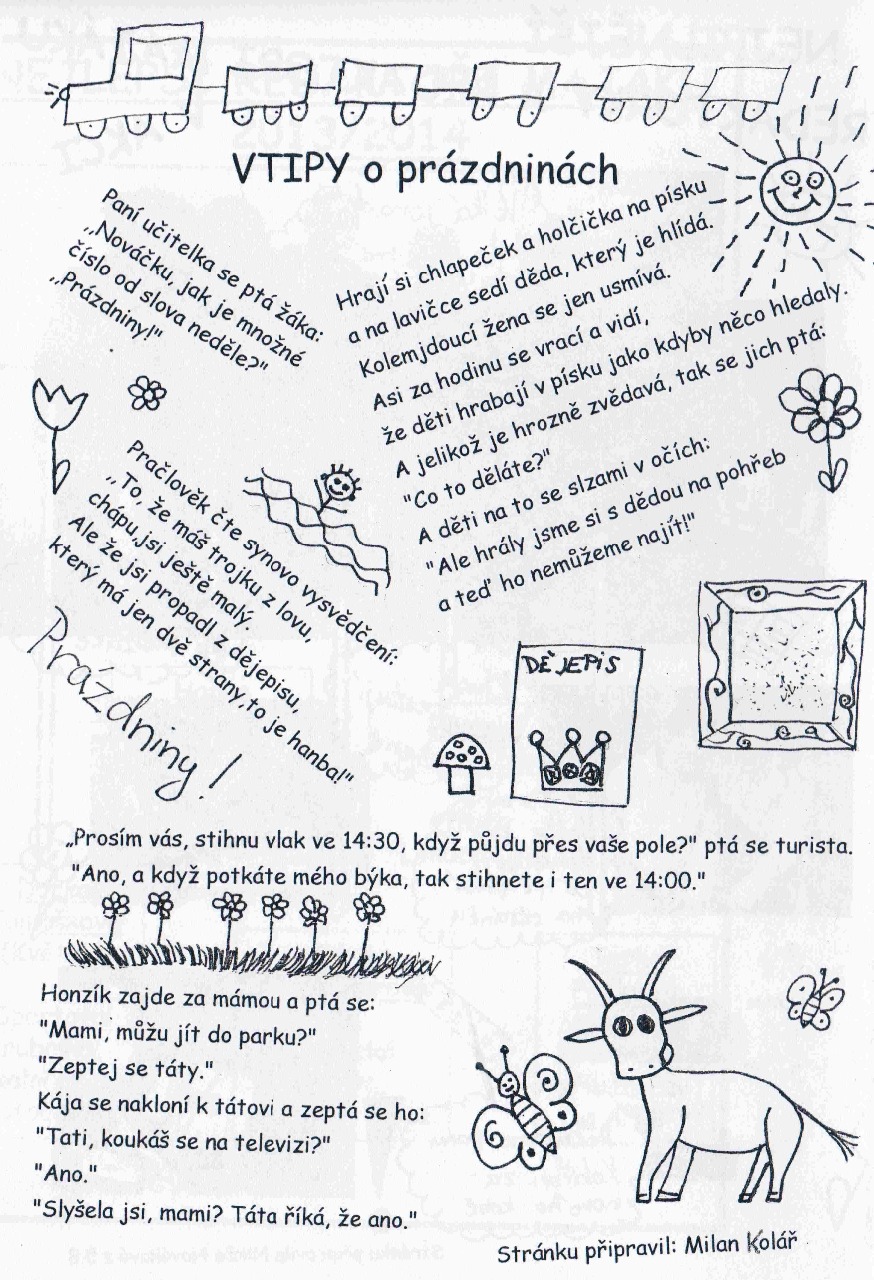 VTIPY o prázdninách
Paní učitelka se ptá žáka:
,,Nováčku, jak je množné
číslo od slova neděle?"
,,Prázdniny!"
Hrají si chlapeček a holčička na písku
a na lavičce sedí děda, který je hlídá.
Kolemjdoucí žena se jen usmívá.
Asi za hodinu se vrací a vidí,
že děti hrabají v písku jako kdyby něco hledaly.
A jelikož je hrozně zvědavá, tak se jich ptá:
"Co to děláte?"
A děti na to se slzami v očích:
"Ale hrály jsme si s dědou na pohřeb
a teď ho nemůžeme najít!"
Pračlověk čte synovo vysvědčení:
,, To, že máš trojku z lovu,
chápu,jsi ještě malý.
Ale že jsi propadl z dějepisu,
který má jen dvě strany,to je hanba!"
Prázdniny!
DĚJEPIS
„Prosím vás, stihnu vlak ve 14:30, když půjdu přes vaše pole?" ptá se turista.
"Ano, a když potkáte mého býka, tak stihnete i ten ve 14:00."
Honzík zajde za mámou a ptá se:
"Mami, můžu jít do parku?"
"Zeptej se táty."
Kája se nakloní k tátovi a zeptá se ho:
"Tati, koukáš se na televizi?"
"Ano."
"Slyšela jsi, mami? Táta říká, že ano."
Stránku připravil: Milan Kolář